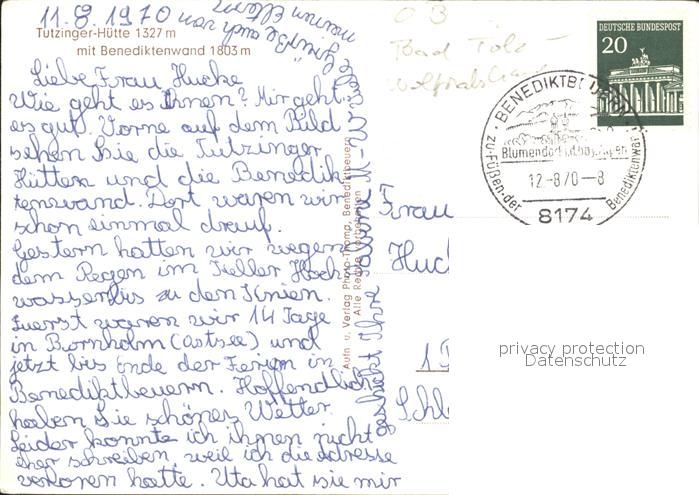 11.8.1970
Tutzinger-Hütte 1327 m
mit Benediktenwand 1803 m
Liebe Frau Hucke
Wie geht es Ihnen? Mir geht
es gut. Vorne auf dem Bild
sehen Sie die Tutzinger
Hütten und die Benedik
tenwand. Dort waren wir
schon einmal drauf.
Gestern hatten wir wegen
dem Regen im Keller Hoch
wasser bis zu den Knien.
Zuerst waren wir 14 Tage
in Bornholm (Ostsee) und
jetzt bis Ende der Ferien in
Benediktbeuern. Hoffendlich
haben Sie schönes Wetter.
Leider konnte ich ihnen nicht
eher schreiben, weil ich die Adresse
verloren hatte. Uta hat sie mir
Es grüßt Ihre Sabine
auch von
meinen Eltern
Aufn. u. Verlag Photo-Thomp, Benediktbeuern
Alle Rechte vorbehalten
Bad Tölz-
Wolfratshausen
DEUTSCHE BUNDESPOST
20
BENEDIKTBEUERN
Blumendorf i.d. bay. Alpen
12.-8.70-8
zu-Füßen-der Benediktenwand
8174
Frau
Huc
Schl
privacy protection
Datenschutz